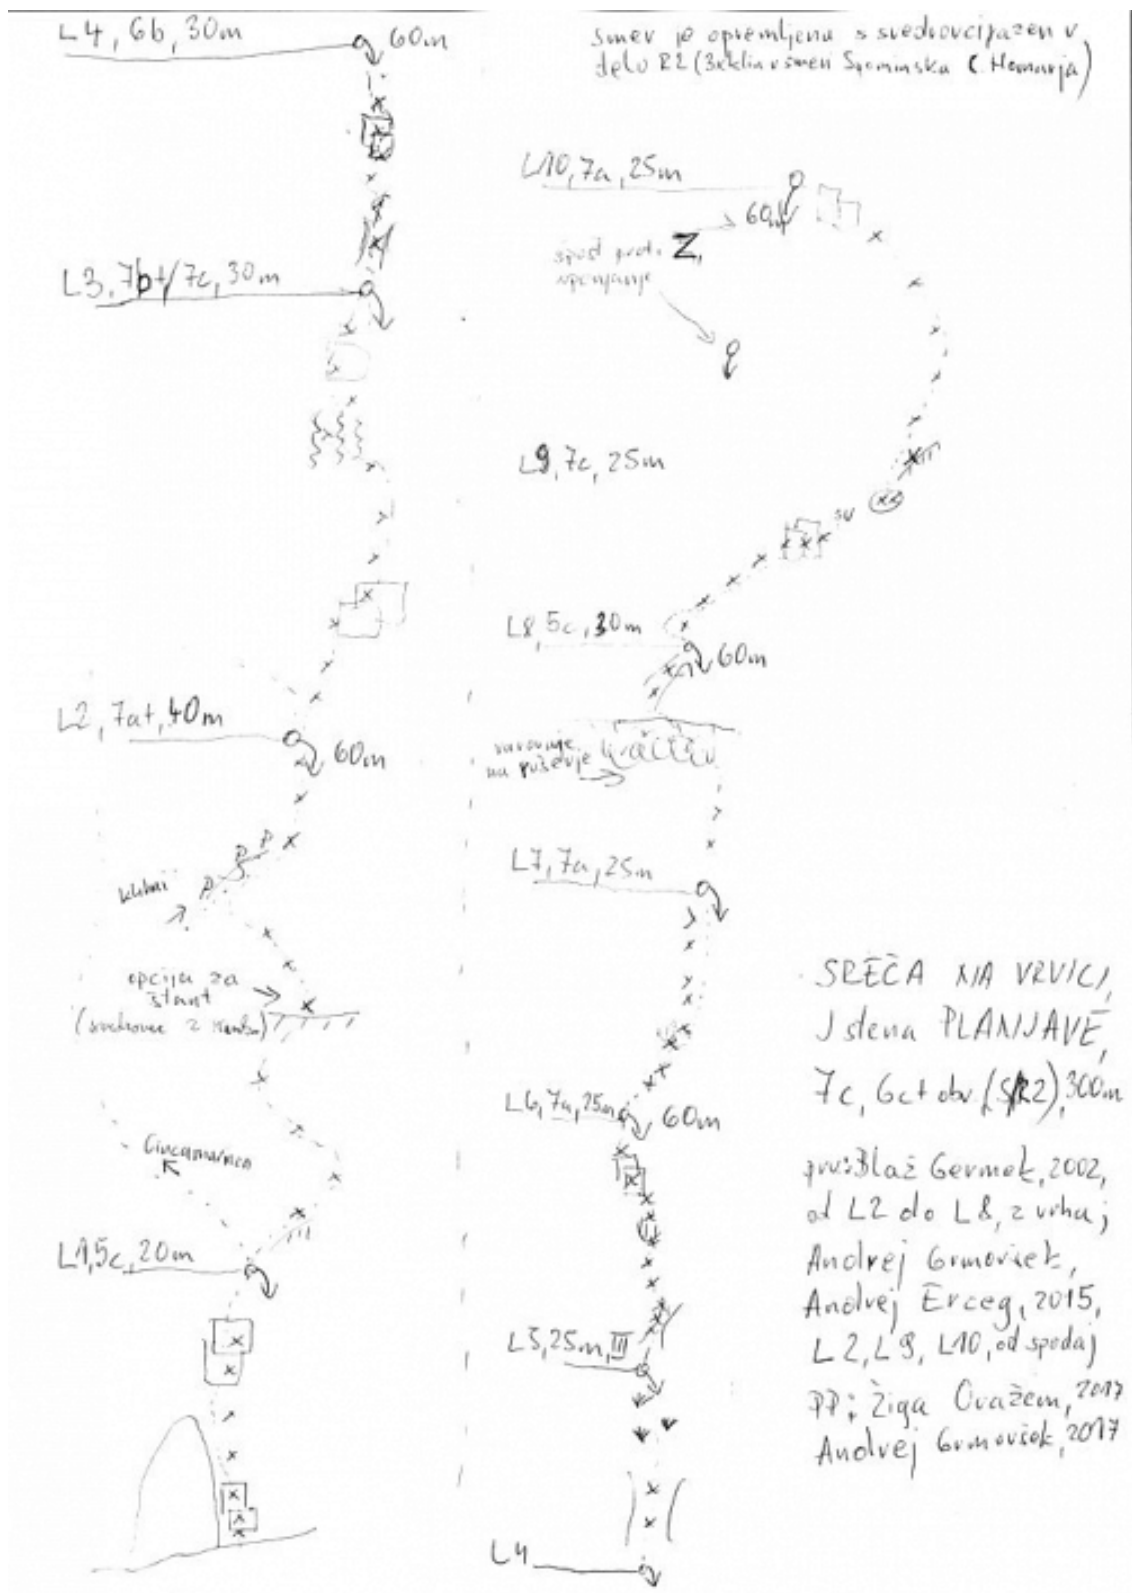 L4, 6b, 30m
60m
L3, 7b+/7c, 30m
L2, 7a+, 40m
60m
klini
opcija za
štant
(svedrovec z
Cincamarica
L1, 5c, 20m
smer je opremljena s svedrovci, razen v
delu R2 (3x klin v smeri Spominska C.
L10, 7a, 25m
60m
spust proti
vpenjanje
L9, 7c, 25m
L8, 5c, 30m
60m
varovanje
na gužvenje
L7, 7a, 25m
L6, 7a, 25m
60m
L5, 25m, III
L4
SREČA NA VRVICI,
J stena PLANJAVE,
7c, 6c+ obv. (S/R2), 300m
prv: Blaž Germek, 2002,
od L2 do L8, z vrha;
Andrej Grmovšek,
Andrej Erceg, 2015,
L2, L9, L10, od spodaj
PP: Žiga Oražem, 2017
Andrej Grmovšek, 2017